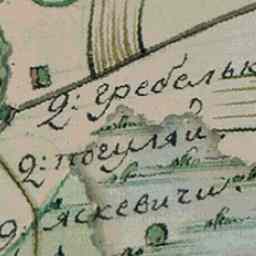 2: гребельк
2: погуляй
2: яскевичи